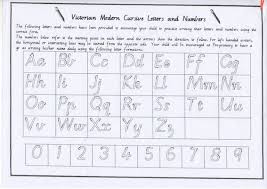 Victorian Modern Cursive Letters and Numbers
The following letters and numbers have been provided to encourage your child to practise writing their letters and numbers using the
correct form.
The numbers below refer to the starting point in each letter and the arrows show the direction to follow. For left handed writers,
the horizontal or intersecting lines may be started from the opposite side. Your child will be encouraged at Preprimary to have a
go at writing his/her name daily using the following letter formations.
Aa Bb Cc Dd Ee Ff Gg
Hh Ii Jj Kk Ll Mm Nn
Oo Pp Qq Rr Ss Tt Uu
Vv Ww Xx Yy Zz
0 1 2 3 4 5 6 7 8 9